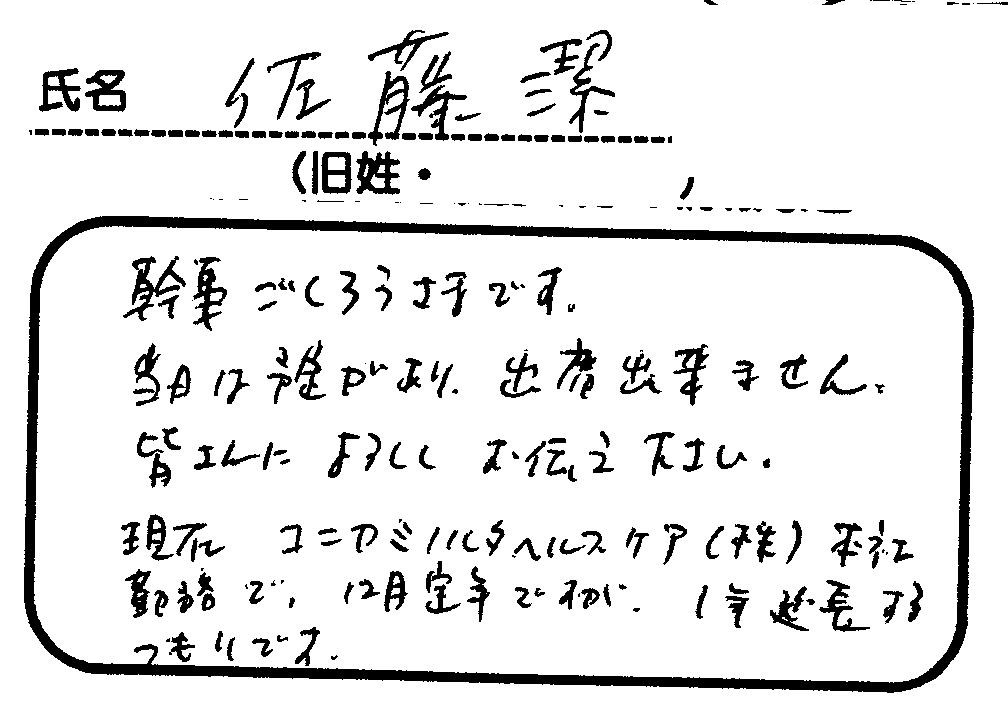 氏名 佐藤 潔
(旧姓・ )
幹事ごくろうさまです。
当日は予定があり、出席出来ません。
皆さんによろしくお伝え下さい。
現在 コニカミノルタヘルスケア(株)本社
勤務で、12月定年ですが、1年延長する
つもりです。